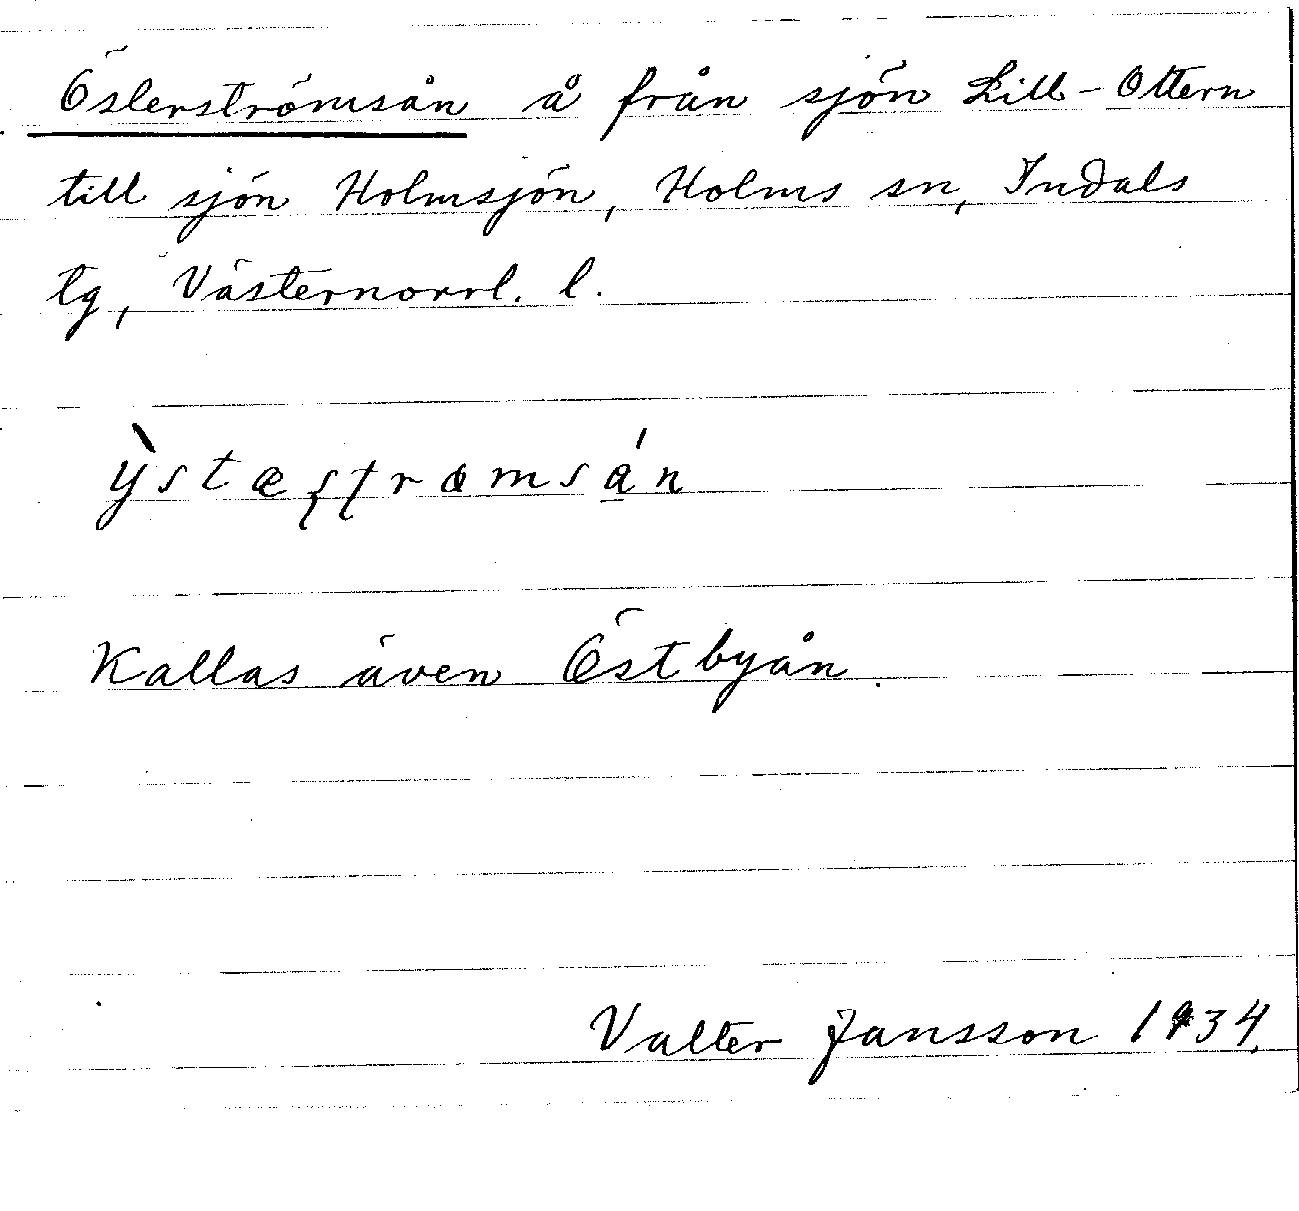 Österströmsån å från sjön Lill-Ottern
till sjön Holmsjön, Holms sn, Indals
tg, Västernorrl. l.
Kallas även Östbyån.
Valter Jansson 1934.